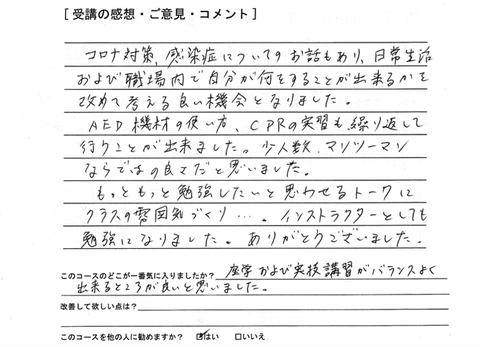 [ 受講の感想・ご意見・コメント ]
コロナ対策、感染症についてのお話もあり、日常生活
および職場内で自分が何をすることが出来るかを
改めて考える良い機会となりました。
AED機材の使い方、CPRの実習も繰り返して
行うことが出来ました。少人数、マンツーマン
ならではの良さだと思いました。
もっともっと勉強したいと思わせるトークに
クラスの雰囲気づくり…。インストラクターとしても
勉強になりました。ありがとうございました。
このコースのどこが一番気に入りましたか? 座学および実技講習がバランスよく
出来るところが良いと思いました。
改善して欲しい点は?
このコースを他の人に勧めますか? ☑はい □いいえ